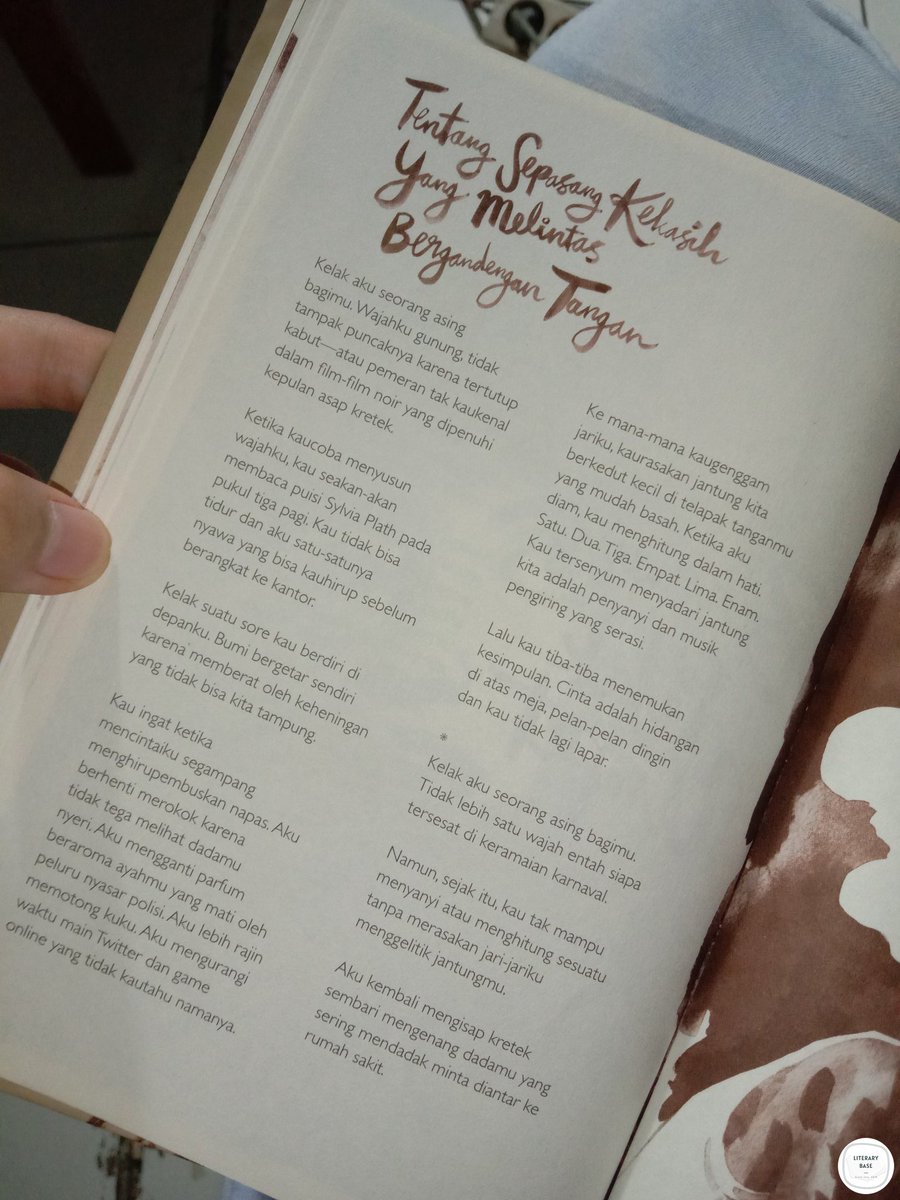 Tentang Sepasang Kekasih
Yang Melintas
Bergandengan Tangan
Kelak aku seorang asing
bagimu. Wajahku gunung, tidak
tampak puncaknya karena tertutup
kabut—atau pemeran tak kaukenal
dalam film-film noir yang dipenuhi
kepulan asap kretek.
Ketika kaucoba menyusun
wajahku, kau seakan-akan
membaca puisi Sylvia Plath pada
pukul tiga pagi. Kau tidak bisa
tidur dan aku satu-satunya
nyawa yang bisa kauhirup sebelum
berangkat ke kantor.
Kelak suatu sore kau berdiri di
depanku. Bumi bergetar sendiri
karena memberat oleh keheningan
yang tidak bisa kita tampung.
Kau ingat ketika
mencintaiku segampang
menghirupembuskan napas. Aku
berhenti merokok karena
tidak tega melihat dadamu
nyeri. Aku mengganti parfum
beraroma ayahmu yang mati oleh
peluru nyasar polisi. Aku lebih rajin
memotong kuku. Aku mengurangi
waktu main Twitter dan game
online yang tidak kautahu namanya.
Ke mana-mana kaugenggam
jariku, kaurasakan jantung kita
berkedut kecil di telapak tanganmu
yang mudah basah. Ketika aku
diam, kau menghitung dalam hati.
Satu. Dua. Tiga. Empat. Lima. Enam.
Kau tersenyum menyadari jantung
kita adalah penyanyi dan musik
pengiring yang serasi.
Lalu kau tiba-tiba menemukan
kesimpulan. Cinta adalah hidangan
di atas meja, pelan-pelan dingin
dan kau tidak lagi lapar.
*
Kelak aku seorang asing bagimu.
Tidak lebih satu wajah entah siapa
tersesat di keramaian karnaval.
Namun, sejak itu, kau tak mampu
menyanyi atau menghitung sesuatu
tanpa merasakan jari-jariku
menggelitik jantungmu.
Aku kembali mengisap kretek
sembari mengenang dadamu yang
sering mendadak minta diantar ke
rumah sakit.
LITERARY
BASE